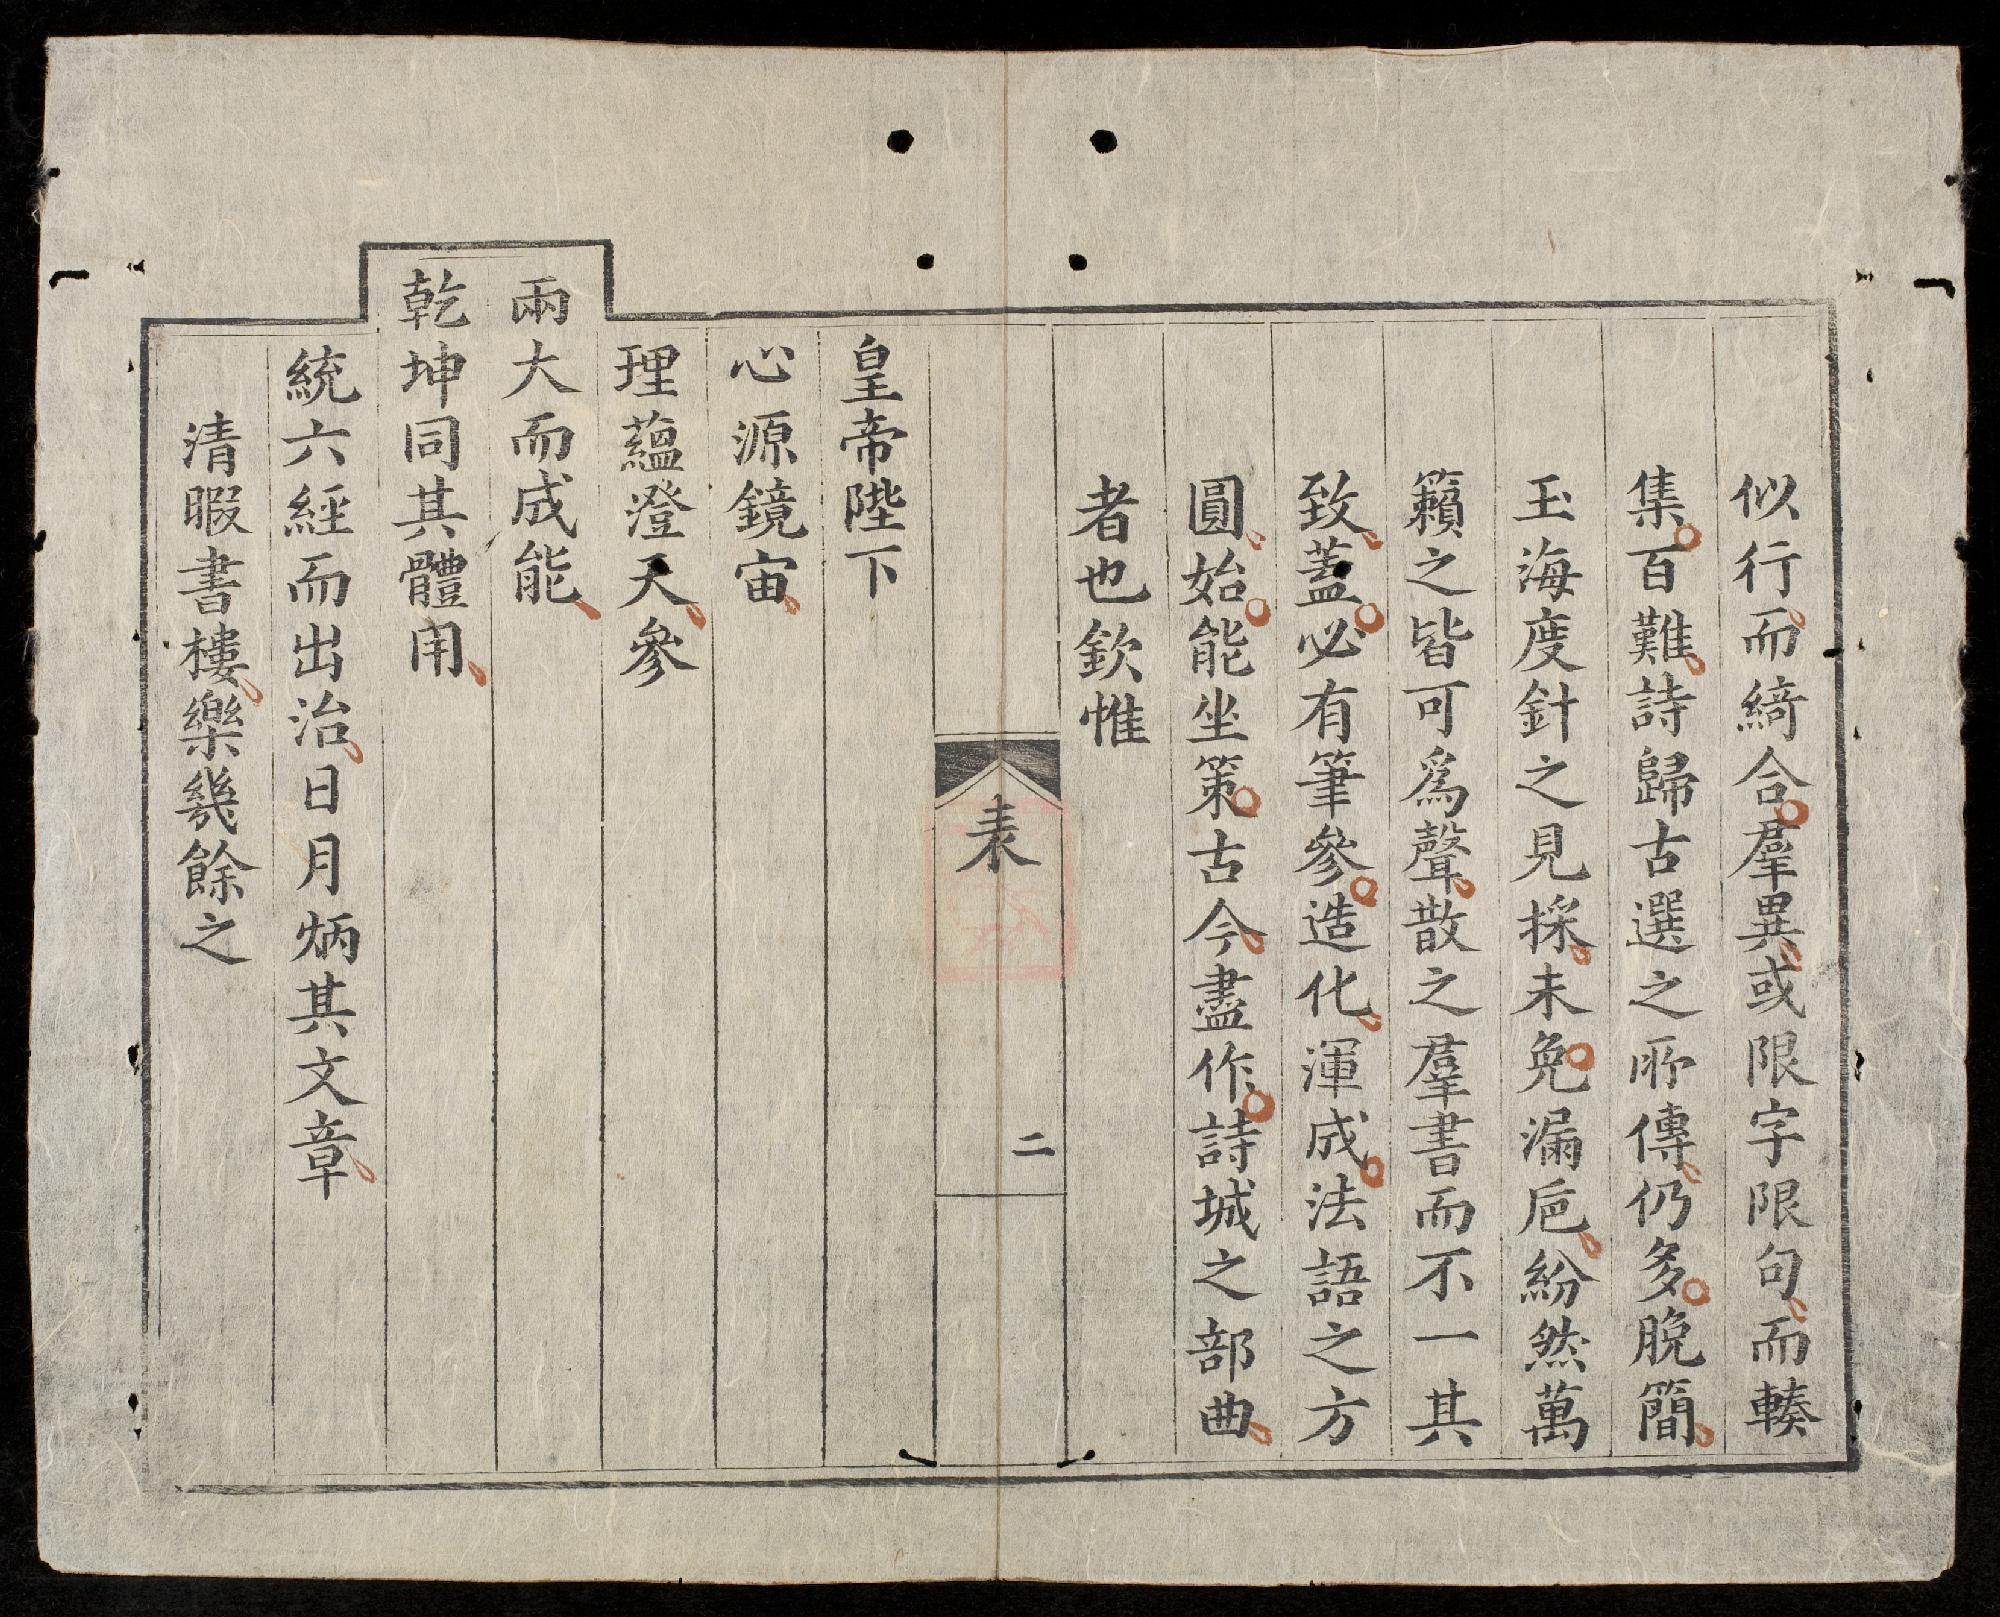 似行而綺合羣異或限字限句而輳
集百難詩歸古選之所傳仍多脫簡
玉海度針之見採未免漏巵紛然萬
籟之皆可爲聲散之羣書而不一其
致蓋必有筆參造化渾成法語之方
圓始能坐策古今盡作詩城之部曲
者也欽惟
表
二
皇帝陛下
心源鏡宙
理蘊澄天參
兩大而成能
乾坤同其體用
統六經而出治日月炳其文章
清暇書樓樂幾餘之